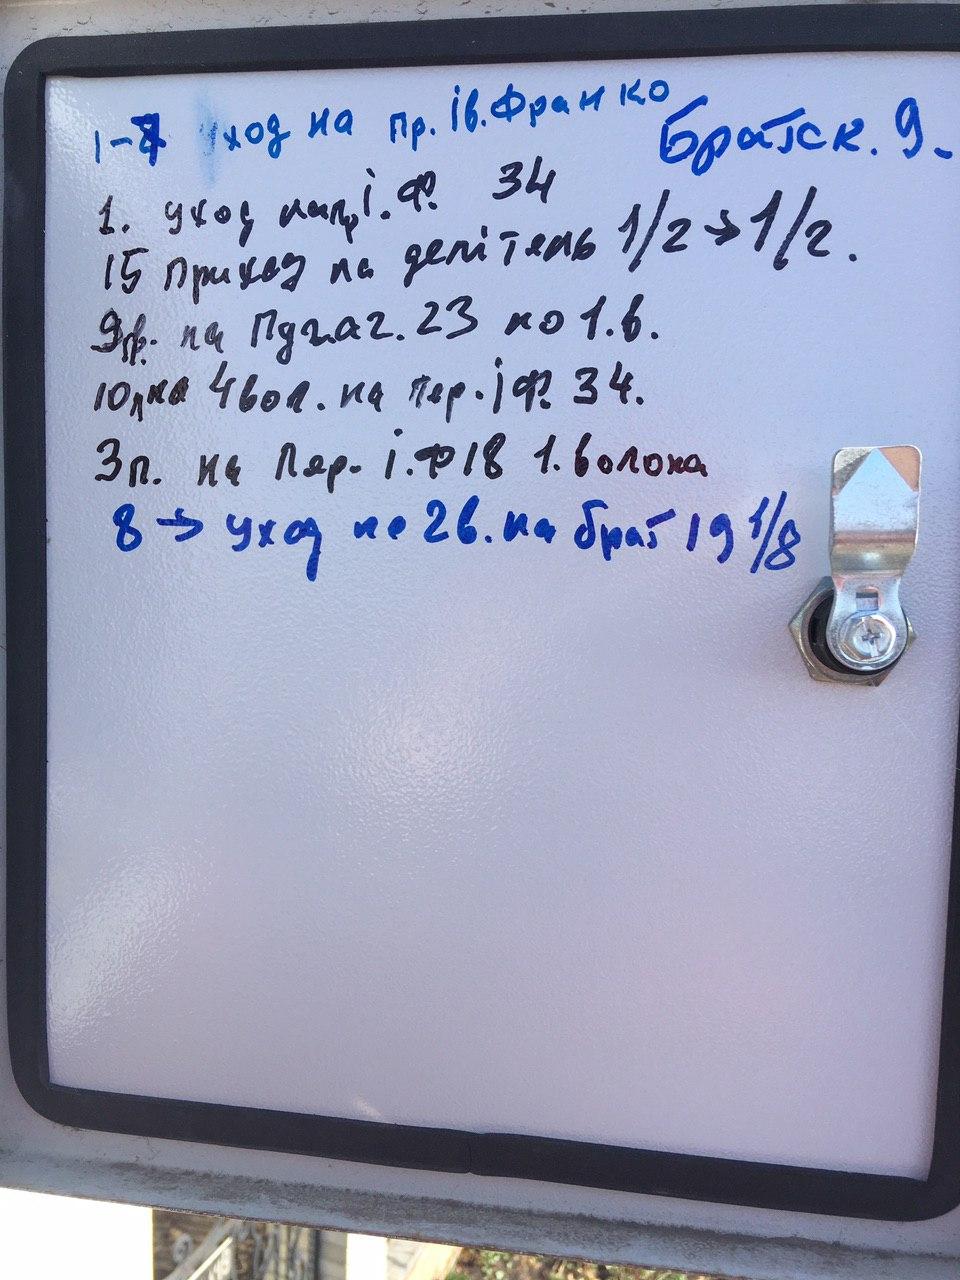 1-7 уход на пр. Ів. Франко
Братск. 9.
1. уход на пр. і. Ф. 34
15 Приход на делітель 1/2 → 1/2.
на Пугач. 23 по 1. в.
на 4 вол. на пер. і Ф. 34.
3п. на Пер. і. Ф 18 1. волокна
8 → уход по 2 в. на брат 19 1/8